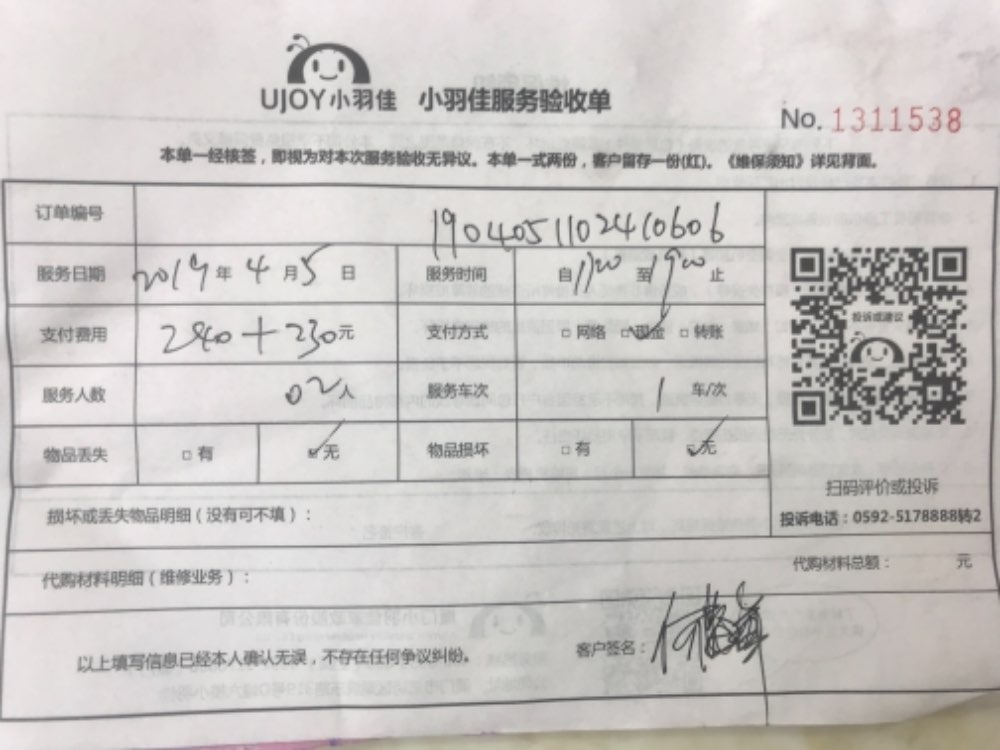 UJOY小羽佳 小羽佳服务验收单
No. 1311538
本单一经核签，即视为对本次服务验收无异议。本单一式两份，客户留存一份(红)。《维保须知》详见背面。
订单编号 1904051102410606
服务日期 2019年4月5日 服务时间 自1100至1900止
支付费用 2840+230元 支付方式 □网络 □现金 □转账
服务人数 02人 服务车次 1 车/次
物品丢失 □有 ☑无 物品损坏 □有 ☑无
投诉或建议
扫码评价或投诉
投诉电话：0592-5178888转2
损坏或丢失物品明细（没有可不填）：
代购材料明细（维修业务）： 代购材料总额： 元
以上填写信息已经本人确认无误，不存在任何争议纠纷。 客户签名：